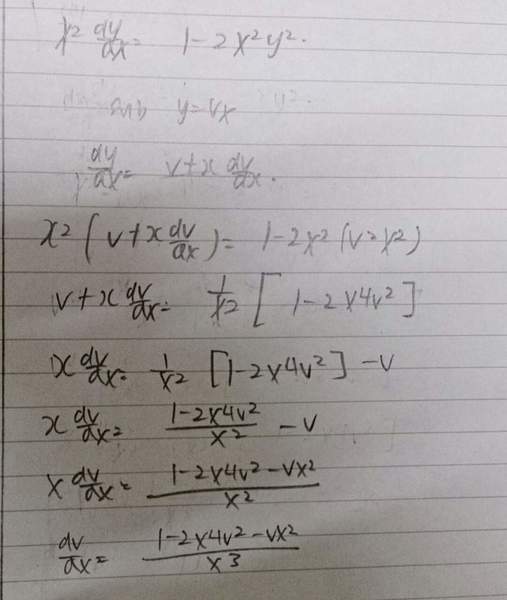 x² dy/dx = 1-2x²y².
sub y=vx y².
dy/dx = v+x dv/dx.
x² (v+x dv/dx) = 1-2x² (v²x²)
v+x dv/dx = 1/x² [1-2x4v²]
x dv/dx = 1/x² [1-2x4v²] -v
x dv/dx = 1-2x4v²/x² -v
x dv/dx = 1-2x4v²-vx²/x²
dv/dx = 1-2x4v²-vx²/x3